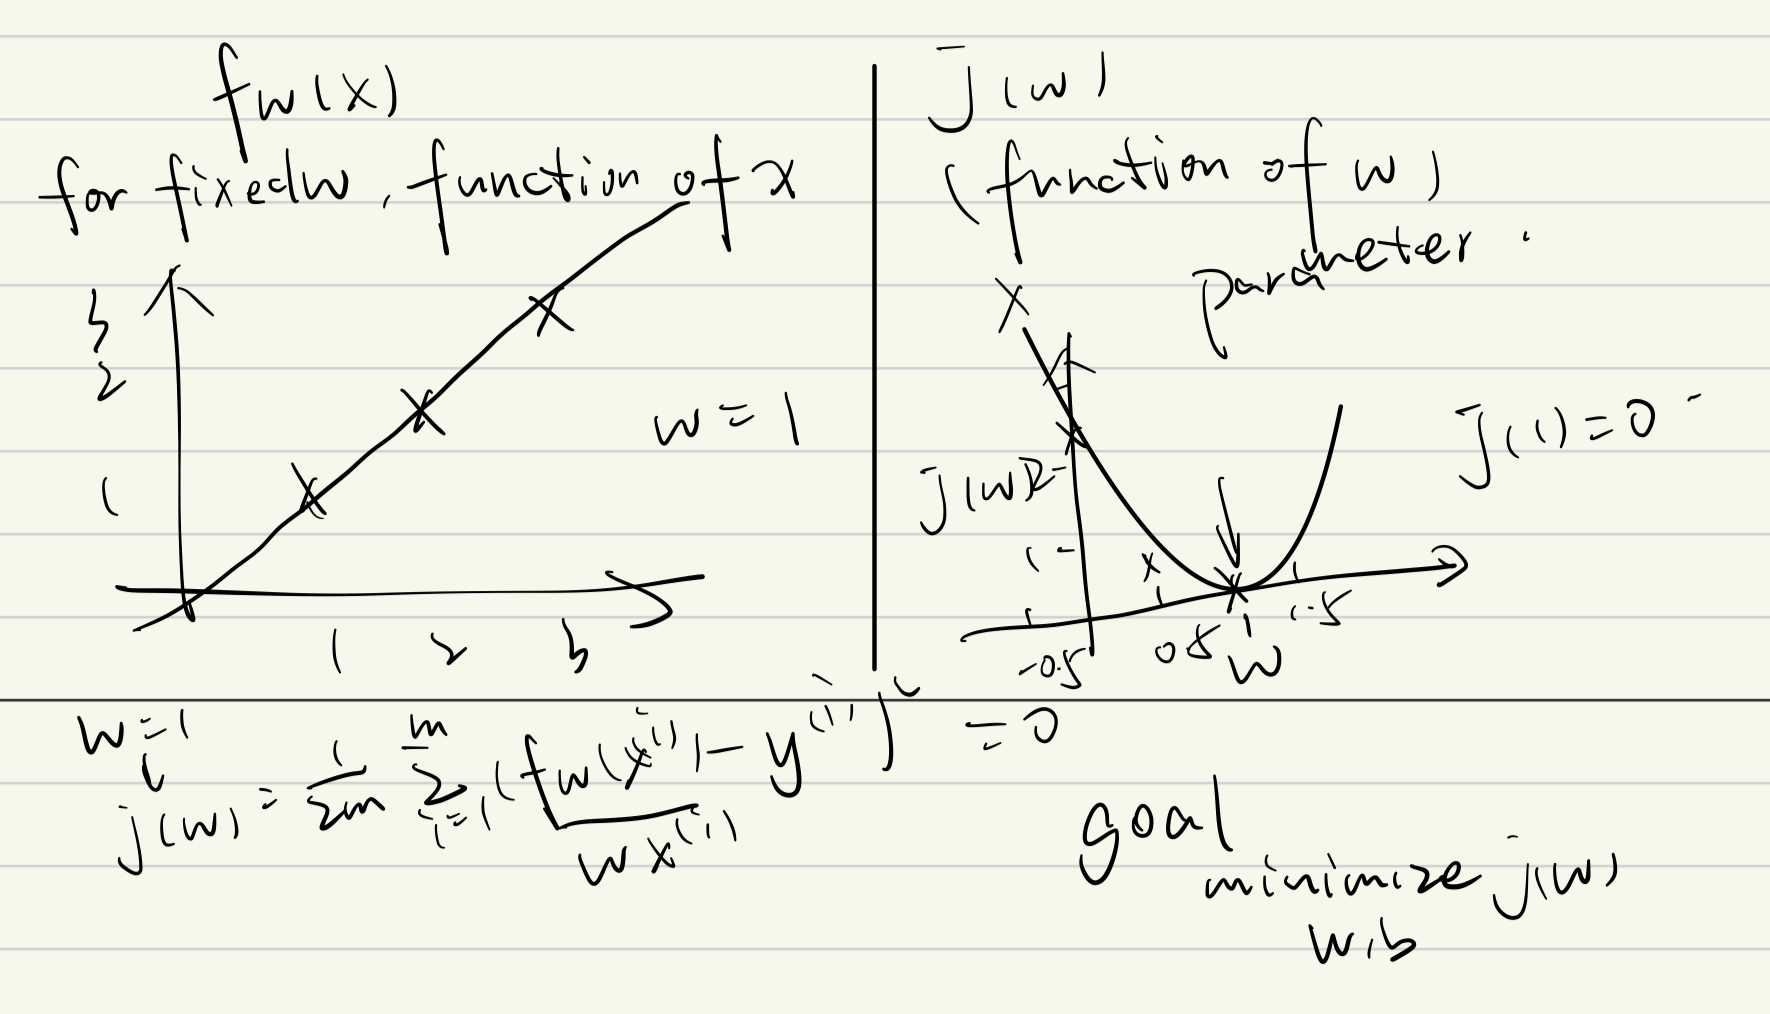 f w (x)
for fixed w, function of x
3
2
1
w = 1
1 2 3
J(w)
(function of w)
parameter.
J(w) 2
1
-0.5 0.5 1 1.5
w
J(1) = 0
w = 1
J(w) = 1/2m m Σ i=1 (fw(x^(i)) - y^(i))^2 = 0
w x^(i)
goal
minimize J(w)
w,b